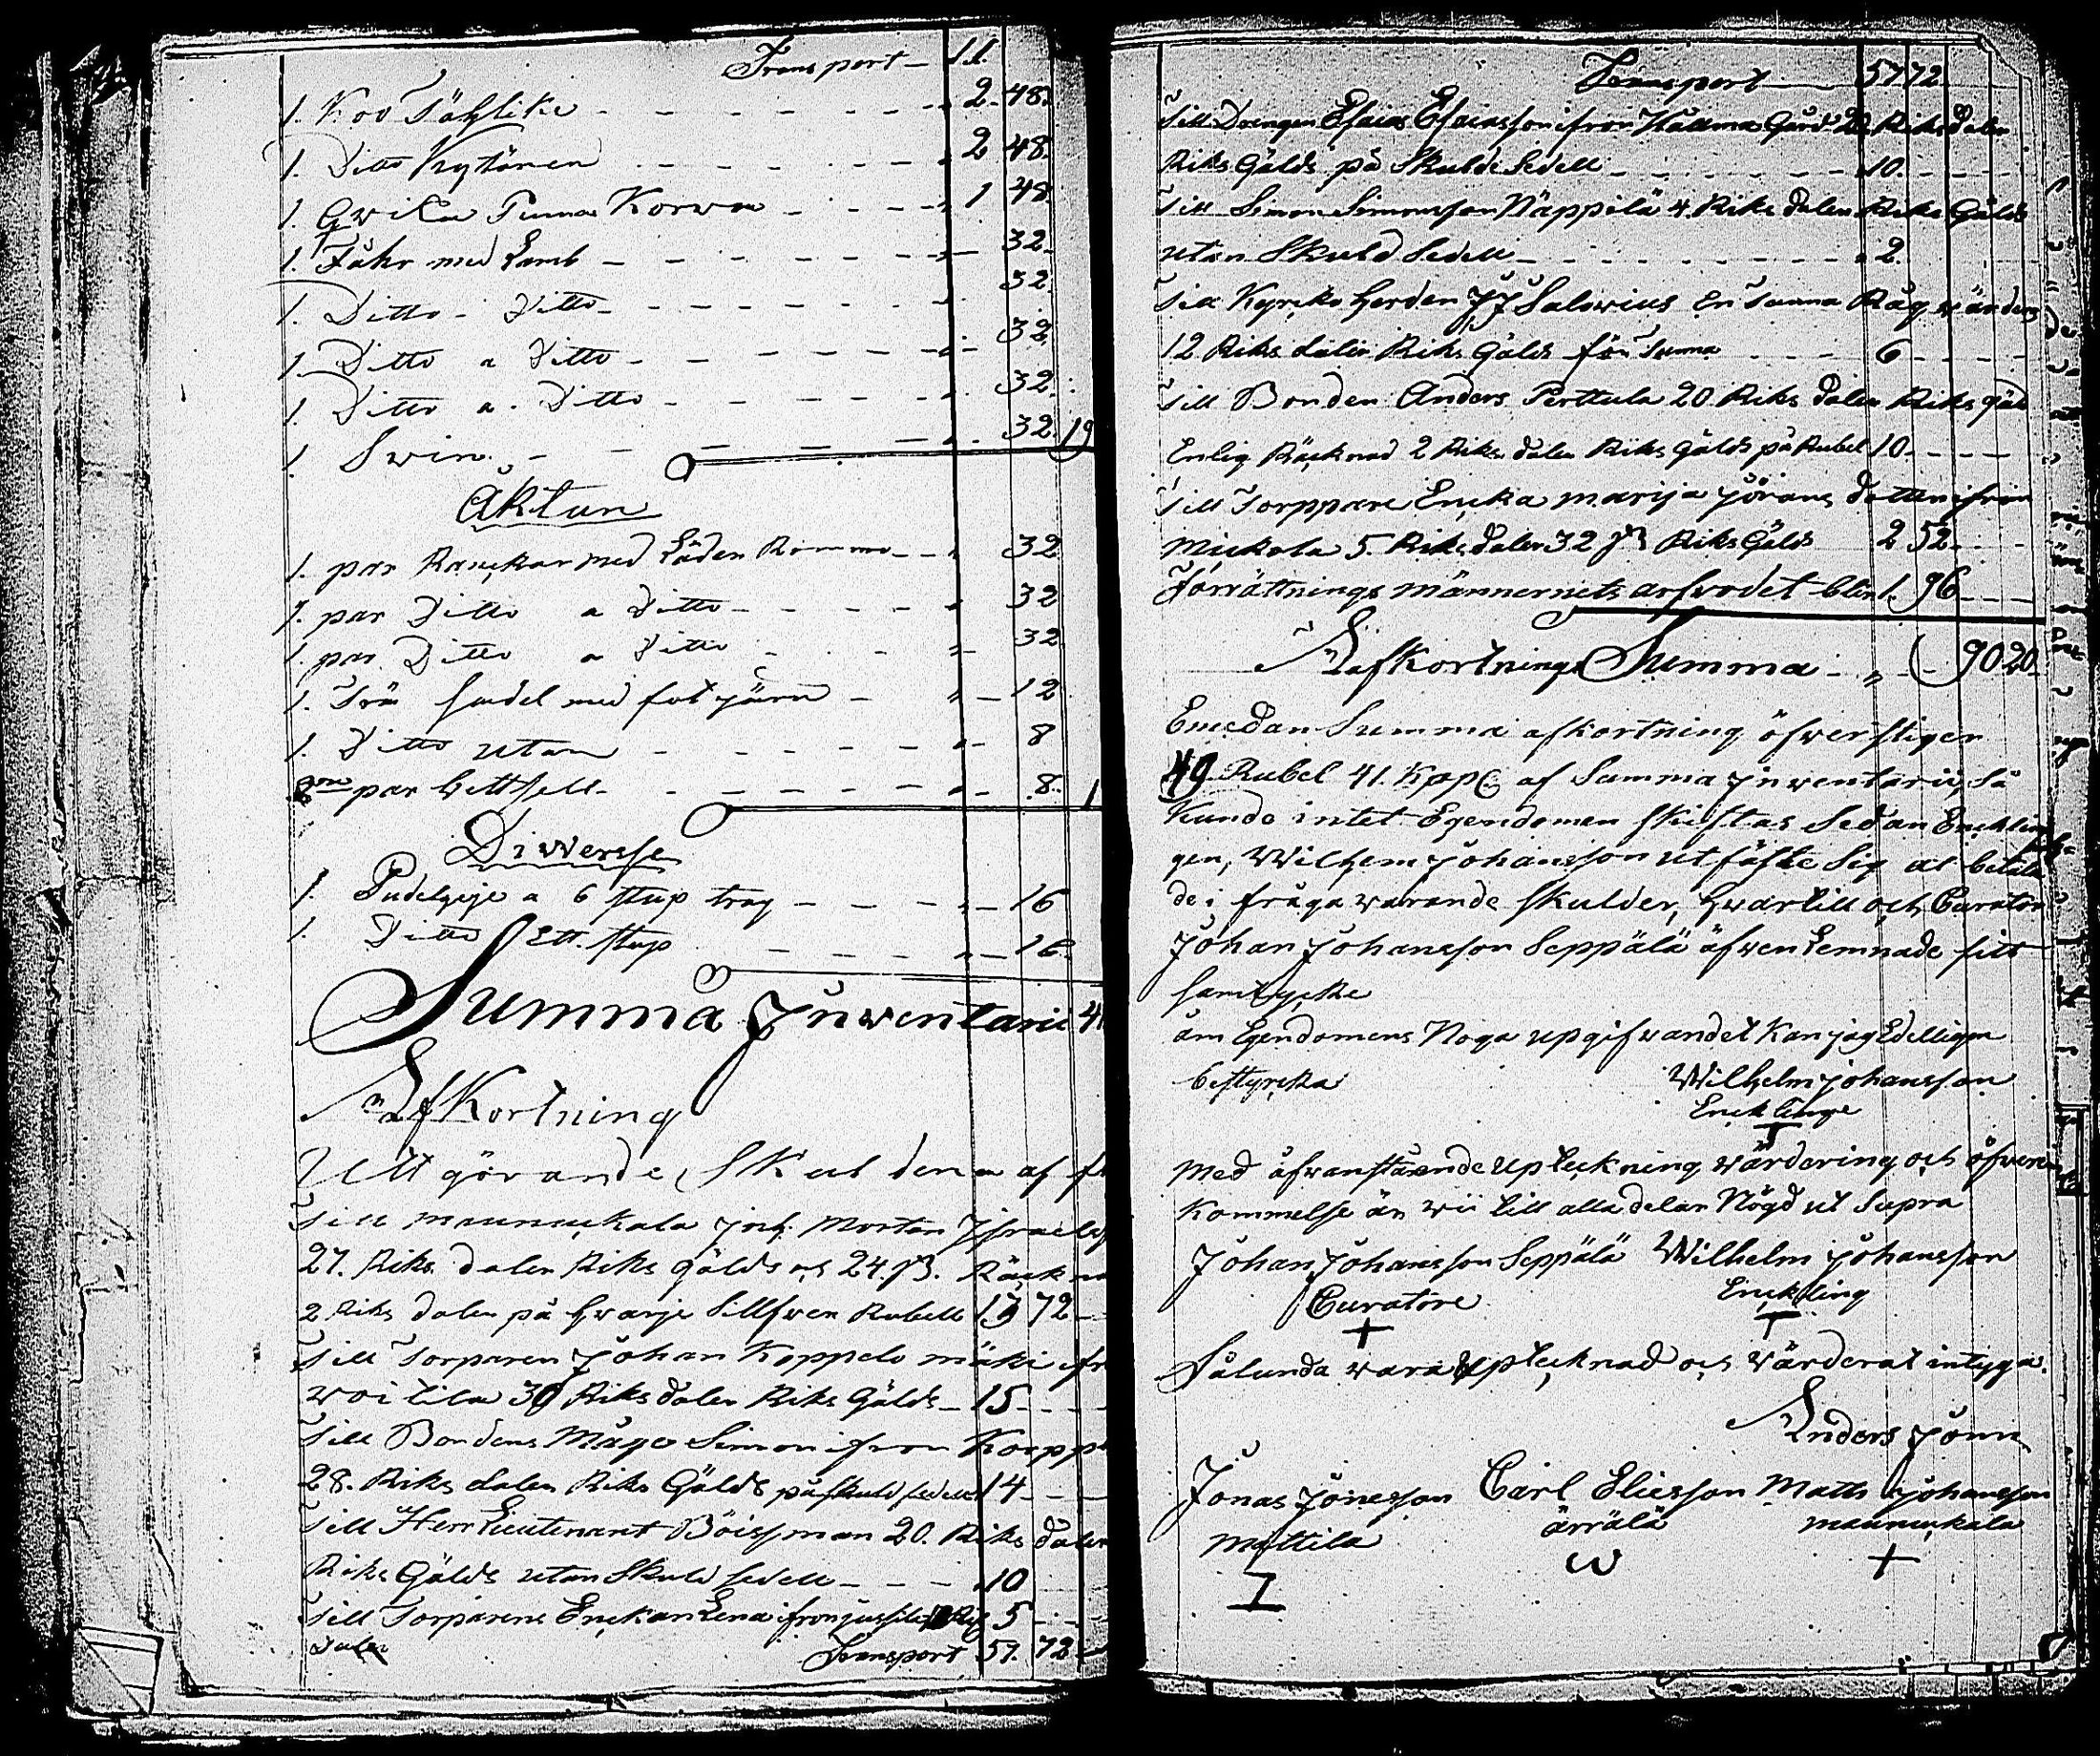 Transport - 11.
1. Koo Tählike - - - - - - - 2. 48.
1. Ditto Kytönen - - - - - - 2 48.
1. Qwika Punna Korwa - - - - 1 48.
1. Fåhr med Lamb - - - - - - 32.
1. Ditto - Ditto - - - - - - - 32.
1. Ditto a Ditto - - - - - - 32
1. Ditto a. Ditto - - - - - - 32.
1 Swin. - - - - - - 32. 19
Åktun
1. par med Läder Romma - - 32
1. par Ditto a Ditto - - - - 32
1. par Ditto a Ditto - - - 32
1. Trä med fot järn - - 12
1. Ditto utan - - - - - - 8
par - - - - - - 8. 1
Diwersse
1. a 6 stop - - - - 16
1. Ditto Ett. stop - - - - 16.
Summa Jnwentarie 41
AfKortning
Utt görande Skulden af
Till maunukala Joh. Morten Jsraels
27. Riks daler Riks gälds och 24. β. Räkna
2 Riks daler på hwarje Sillfwer Rubell 13 72 -
Till Torparen Johan Koppelo mäki ifr
woitila 30 Riksdaler Riks Gälds - 15 - - -
Till Bondens Måge Simon ifron Korpp
28. Riks daler Riks Gälds på skuld sedell 14 - - -
Till Herr Lieutenant Böisman 20. Riks daler
Riks Gälds utan Skuld sedell - - - 10
Till Torparens Enckan Lena ifron jussila 5 - - -
daler Transport 57. 72 -
Transport 57 72.
Till Drengen Esaias Esaiasson ifron Gård 20 Riksdaler
Riks Gälds på Skulde Sedell - - - - - - 10. - - -
Till Simon Simonsson Näppilä 4. Riks daler Riks Gälds
utan Skuld Sedell - - - - - - - - 2.
Till Kyrko Herden JJ Salovius En Tunna Råg wärderd
12 Riks daler Riks Gälds för Tunna - - - 6 - - -
Till Bonden Anders Perttula 20 Riks daler Riks gäld
Enlig Räcknad 2 Riks daler Riks Gälds på Rubel 10. - - -
Till Torppare Encka marija Jörans dotter ifrån
Mickola 5. Riks daler 32 β Riks Gälds 2 52. - - -
Förrättnings männernets arfvodet blir 1. 96 - - -
Afkortnings Summa - „ - 90 20.
Emedan Summa afkortning öfwerstiger
49 Rubel 41. Kop. af Summa Jnwentarie, Så
Kunde intet Egendomen skiftas Sedan Encklin
gen, Wilhelm Johansson utfäste Sig at betala
de i fråga warande skulder, hwartill och Curator
Johan Johansson Seppälä äfwen Lemnade sitt
samtycke
äm Egendomens Noga upgifwandet Kan jag Edelligen
bestyrcka Wilhelm Johansson
Encklinge
Med åfwanstående upteckning, wärdering och öfweren
kommelse är wii till alla delar Nögd ut Supra
Johan Johansson Seppälä Wilhelm Johansson
Curatore Enckling
Sålunda wara Uptecknad och wärderat intyga.
Anders Jönn
Jonas Jönesson Carl Eliesson Matts Johansson
Mattila ärrälä maunukala